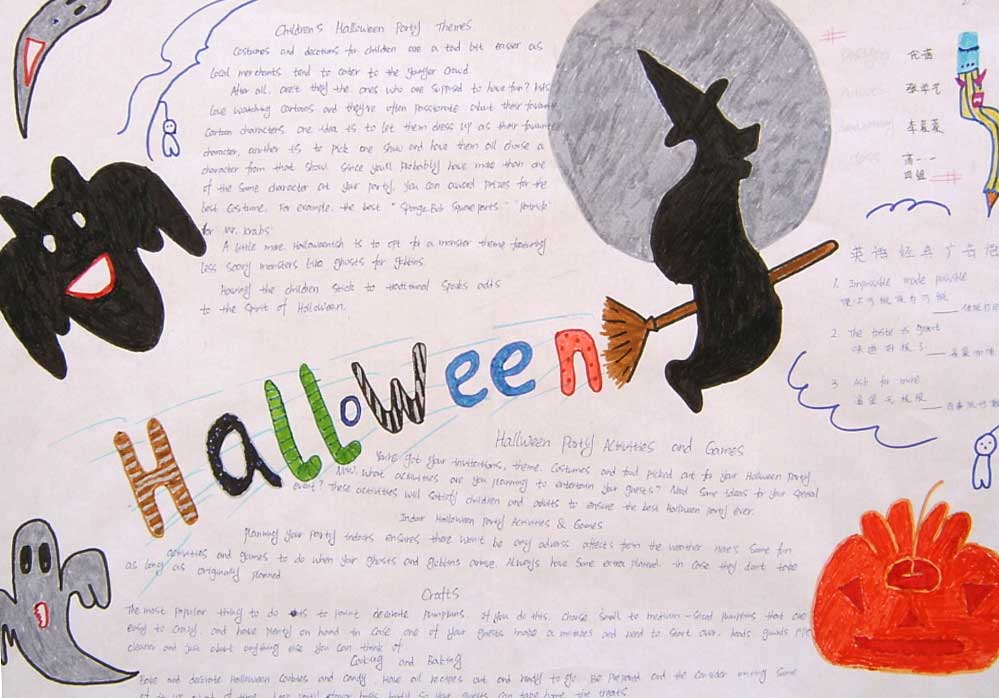 Children's Halloween Party Themes
Costumes and decotions for children are a tad bit easier as
local merchants tend to cater to the younger crowd.
After all, aren't they the ones who are supposed to have fun? kids
love watching cartoons and they're often passionate about their favourite
cartoon characters. one idea is to let them dress up as their favourite
character, another is to pick one show and have them all choose a
character from that show. Since you'll probably have more than one
of the same character at your party, you can award prizes for the
best costume. For example, the best "Sponge Bob Square pants" "patrick"
for Mr. krabs
A little more Halloweenish is to opt for a monster theme featuring
less scary monsters like ghosts for goblins.
Having the children stick to traditional spooks adds
to the spirit of Halloween.
Halloween
Halloween Party Activities and Games
You've got your invitations, theme, costumes and food picked out for your Halloween Party
Now what activities are you planning to entertain your guests? Need some ideas for your special
event? These activities will satisfy children and adults to ensure the best Halloween party ever.
Indoor Halloween party Activities & Games
planning your party indoors ensures there won't be any adverse affects from the weather. Here's some fun
activities and games to do when your ghosts and goblins arrive. Always have some extra planned in case they don't take
as long as originally planned
Crafts
The most popular thing to do is to paint decorate pumpkins. if you do this, choose small to medium-sized pumpkins that are
easy to carry, and have plenty on hand in case one of your guests makes a mistakes and need to start over. hands, guards, pipe
cleaner and just about anything else you can think of
Cooking and Baking
Bake and decorate Halloween cookies and candy. Have all recipes out and ready to go. Be prepared and the consider mixing some
so your guests can take home the treats
李曼蔓
高一·一
四组
英语经典广告语
1. Impossible made possible
使不可能变为可能
2. The taste is great
味道好极了
雀巢咖啡
3. Ask for more
渴望无极限
百事流行鞋